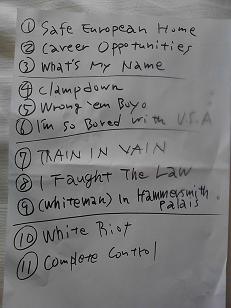 ① Safe European Home
② Career Oppotunities
③ What's My Name
④ Clampdown
⑤ Wrong 'em Boyo
⑥ I'm so Bored with U.S.A
⑦ TRAIN IN VAIN
⑧ I Faught The Law
⑨ (Whiteman) In Hammersmith
Palais
⑩ White Riot
⑪ Complete Control